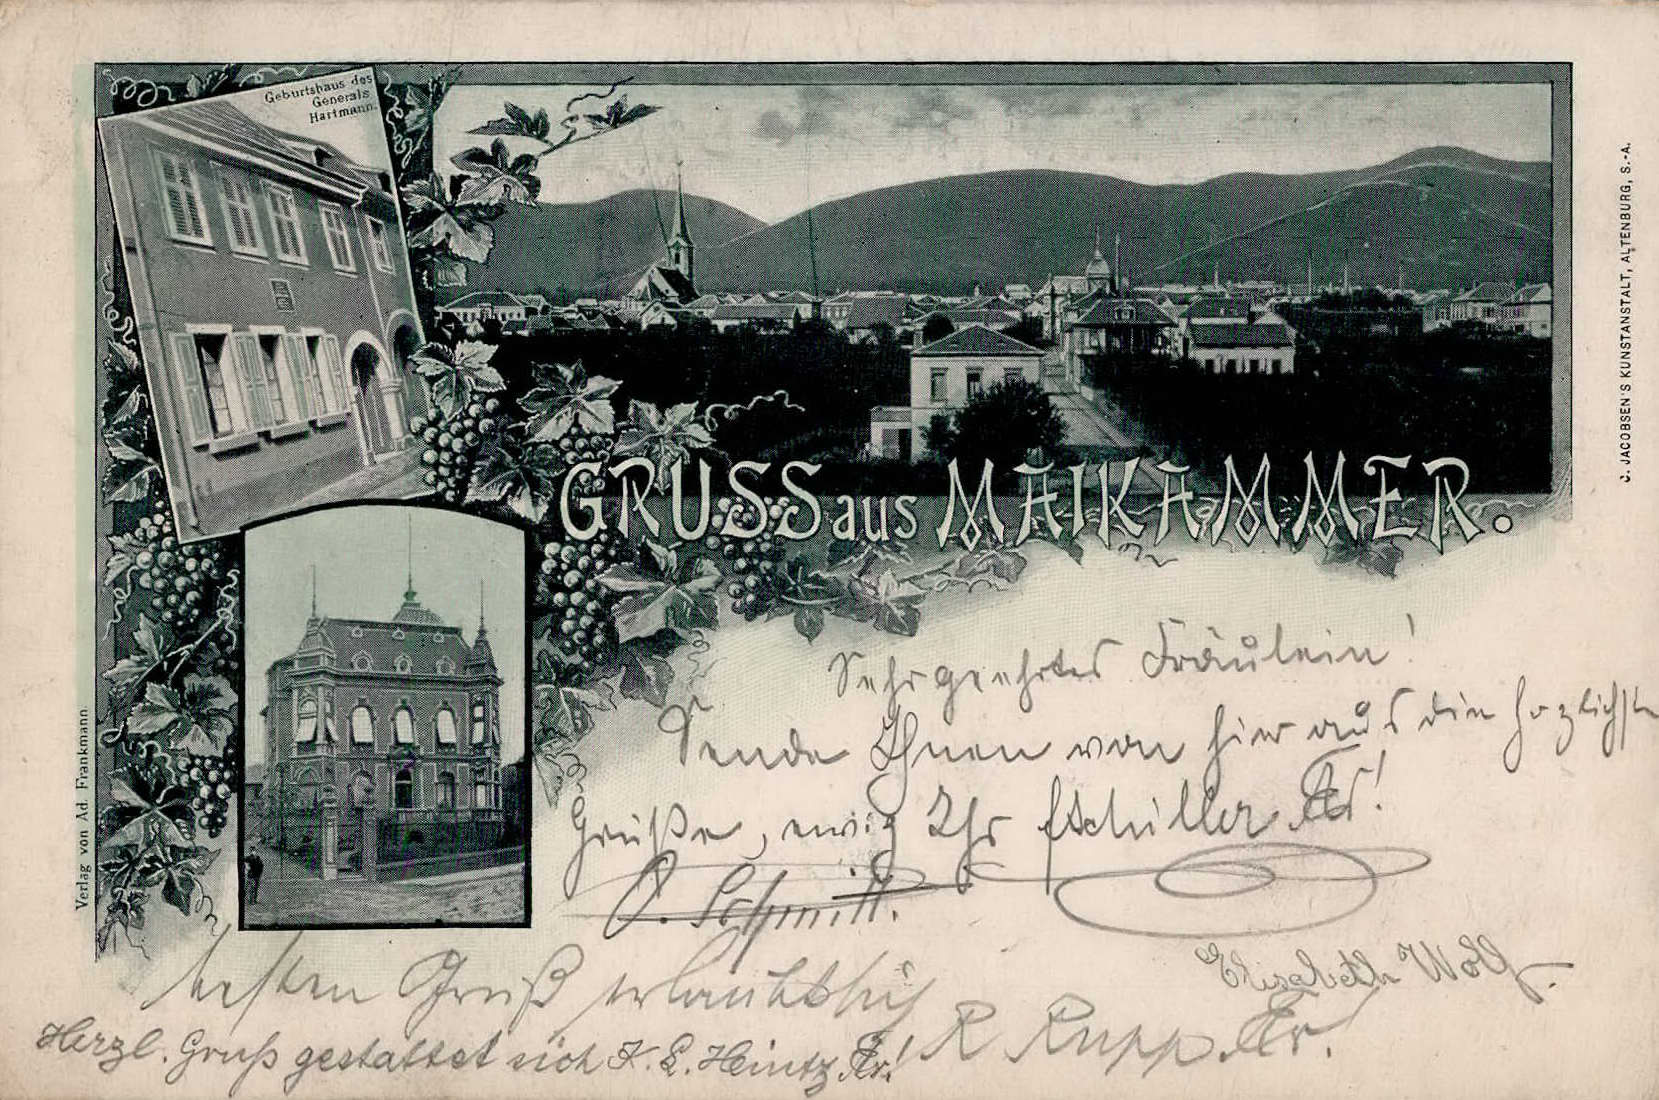 Geburtshaus des
Generals
Hartmann.
GRUSS aus MAIKAMMER.
C. JACOBSEN'S KUNSTANSTALT, ALTENBURG, S.-A.
Verlag von Ad. Frankmann.
Sehr geehrtes Fräulein!
Sende Ihnen von hier aus die herzlichsten
Grüße, ewig Ihr
O. Schmitt.
Elisabeth Wolf.
besten Gruß erlaubt sich
R Rupp
Herzl. Gruß gestattet sich K. L. Heintz